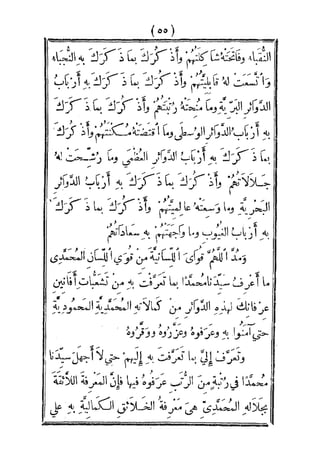 ( ٥٥ )
النُّقَبَاء وفَاتَحَتْهُ شَاكِلَتُهُمْ وأَذْكُرَكَ بِمَا ذَكَرَكَ بِهِ النُّجَبَاء
وَاتَّسَعَتْ لَهُ قَابِلِيَّتُهُمْ وأَذْكُرَكَ بِمَا ذَكَرَكَ بِهِ أَرْبَابُ
الدَّوَائِرِ البَرِّيَّةِ وما مَنَحَتْهُ رُتْبَتُهُمْ وأَذْكُرَكَ بِمَا ذَكَرَكَ
بِهِ أَرْبَابُ الدَّوَائِرِ الوُسْطَى وَمَا اقْتَضَتْهُ مُكْنَتُهُمْ وأَذْكُرَكَ
بِمَا ذَكَرَكَ بِهِ أَرْبَابُ الدَّوَائِرِ العُظْمَى وما رُشِّحَتْ لَهُ
جَلَالَاتُهُمْ وأَذْكُرَكَ بِمَا ذَكَرَكَ بِهِ أَرْبَابُ الدَّوَائِرِ
البَحْرِيَّةِ وما وَسِعَتْهُ عَالَمِيَّتُهُمْ وأَذْكُرَكَ بما ذَكَرَكَ
بِهِ أَرْبَابُ الغُيُوبِ وما وَاجَهَتْهُمْ بِهِ سَعَادَاتُهُمْ
وَمُدَّ اَللَّهُمَّ قُوَاىَ اَللِّسَانِيَّةَ مِنْ قُوَى اَللِّسَانِ المُحَمَّدِى
ما أَعْرِفُ سَيِّدَنَا مُحَمَّدًا بِما تَعَرَّفْتَ بِهِ مِنْ تَشَعُّبَاتِ أَفَانِينِ
عِرْفَانِكَ لِهذِهِ الدَّوَائِرِ مِنْ كَمَالَاتِهِ المُحَمَّدِيَّةِ المَحْمُودِيَّةِ
حتى آمَنُوا بِهِ وعَرَفُوهُ وعَزَّرُوهُ وَوَقَّرُوهُ
وتَعَرَّفْ إِلَيَّ بِما تَعَرَّفْتَ بِهِ إِلَيهِمْ حتى لَا أَجْهَلَ سَيِّدَنَا
مُحَمَّدًا فى رُتْبَةٍ مِنَ الرُّتَبِ عَرَفُوهُ فيها فإِنَّ المَعْرِفَةَ اللَّائِقَةَ
بِجَلَالِهِ المُحَمَّدِيِّ هِىَ مَعْرِفَةُ الخَلَائِقِ الكَمَالِيَّةِ بِهِ على